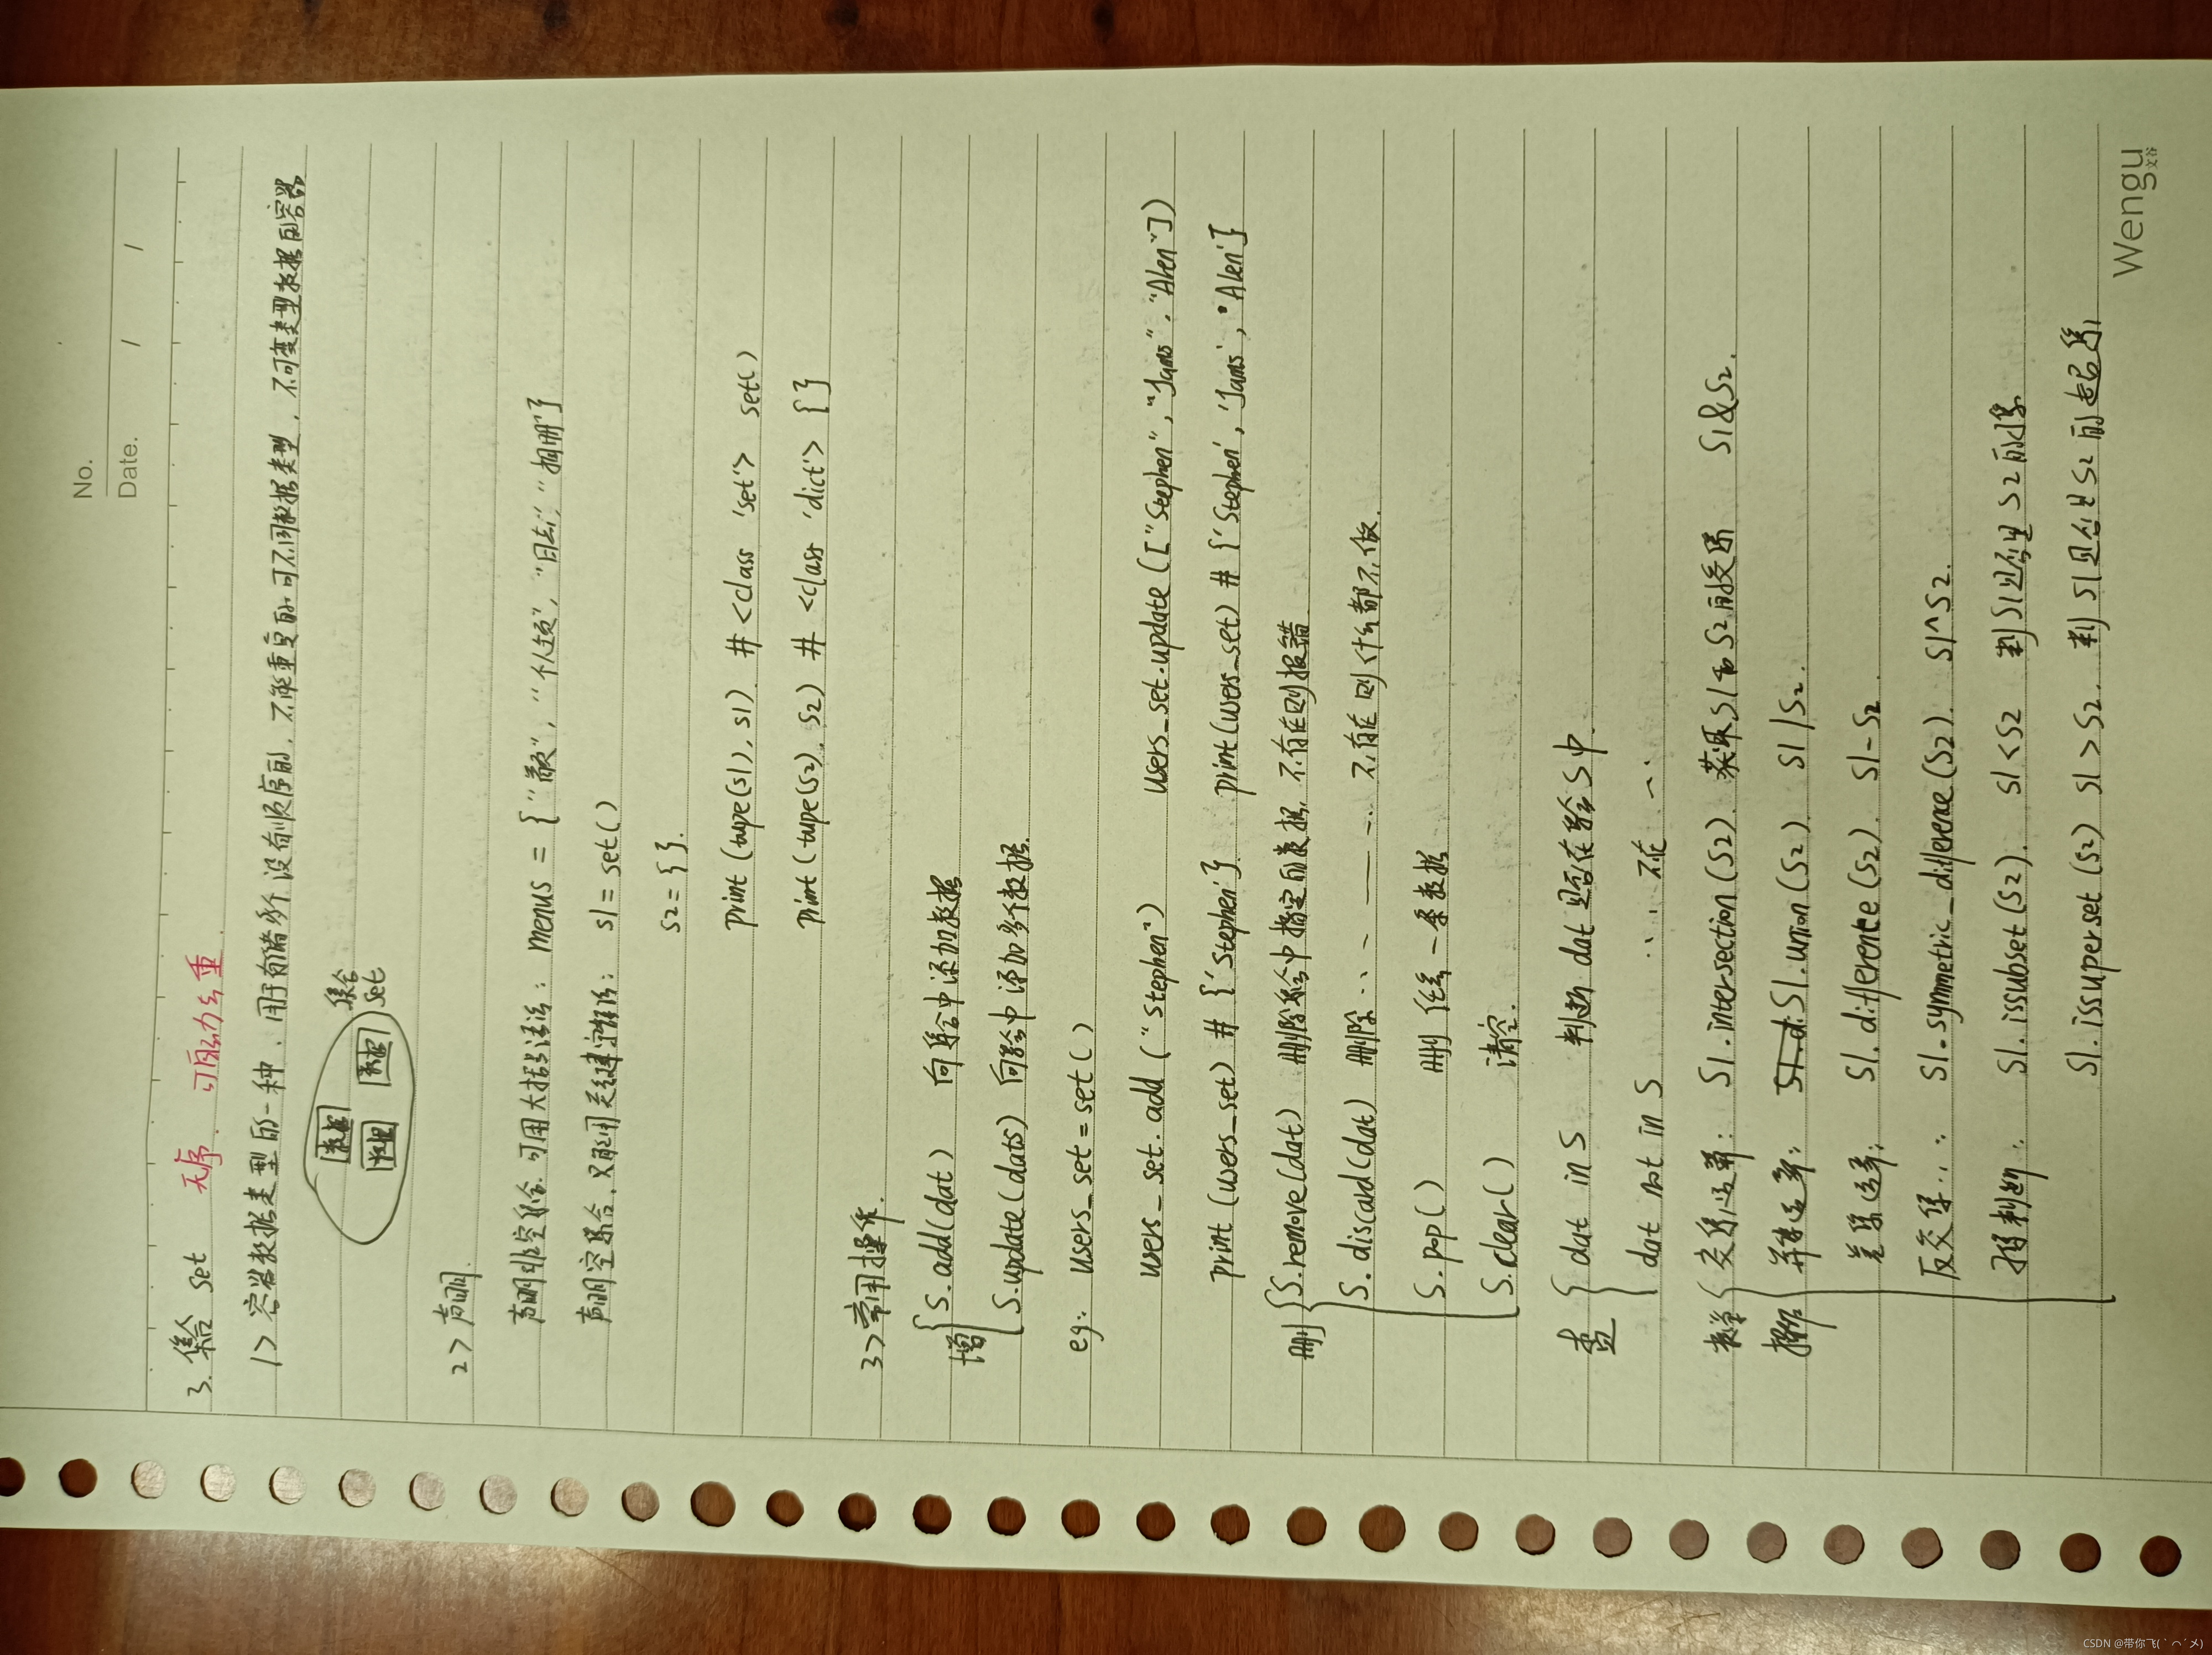 No.
Date. / /
3. 集合 set 无序. 可自动去重.
1> 容器数据类型的一种, 用于存储多个没有顺序的, 不能重复的, 可不同数据类型, 不可变类型数据的容器
集合
set
数据
数据
数据
2> 声明.
声明非空集合. 可用大括号语法: menus = {"献", "个人", "日志", "相册"}
声明空集合, 只能用关键字语法: s1 = set()
s2 = {}.
print(type(s1), s1) # <class 'set'> set()
print(type(s2), s2) # <class 'dict'> {}
3> 常用操作.
增 S.add(dat) 向集合中添加数据
S.update(dats) 向集合中添加多个数据.
eg: users_set = set()
users_set.add("Stephen") users_set.update(["Stephen", "Jams", "Alen"])
print(users_set) # {'Stephen'} print(users_set) # {'Stephen', 'Jams', 'Alen'}
删 S.remove(dat) 删除集合中指定的数据, 不存在则报错
S.discard(dat) 删除 ... 不存在则什么都不做.
S.pop() 删任意一条数据
S.clear() 清空.
查 dat in S 判断 dat 是否在集合S中.
dat not in S ... 不在 ...
数学 交集运算: S1.intersection(S2). 获取S1和S2的交集 S1&S2.
操作 并集运算: S1.union(S2) S1|S2.
差集运算: S1.difference(S2). S1-S2.
反交集 ...: S1.symmetric_difference(S2). S1^S2.
判断: S1.issubset(S2). S1<S2 判S1是否是S2的子集.
S1.issuperset(S2) S1>S2. 判S1是否是S2的超集.
Wengu
文谷
CSDN @带你飞(｀⌒´メ)